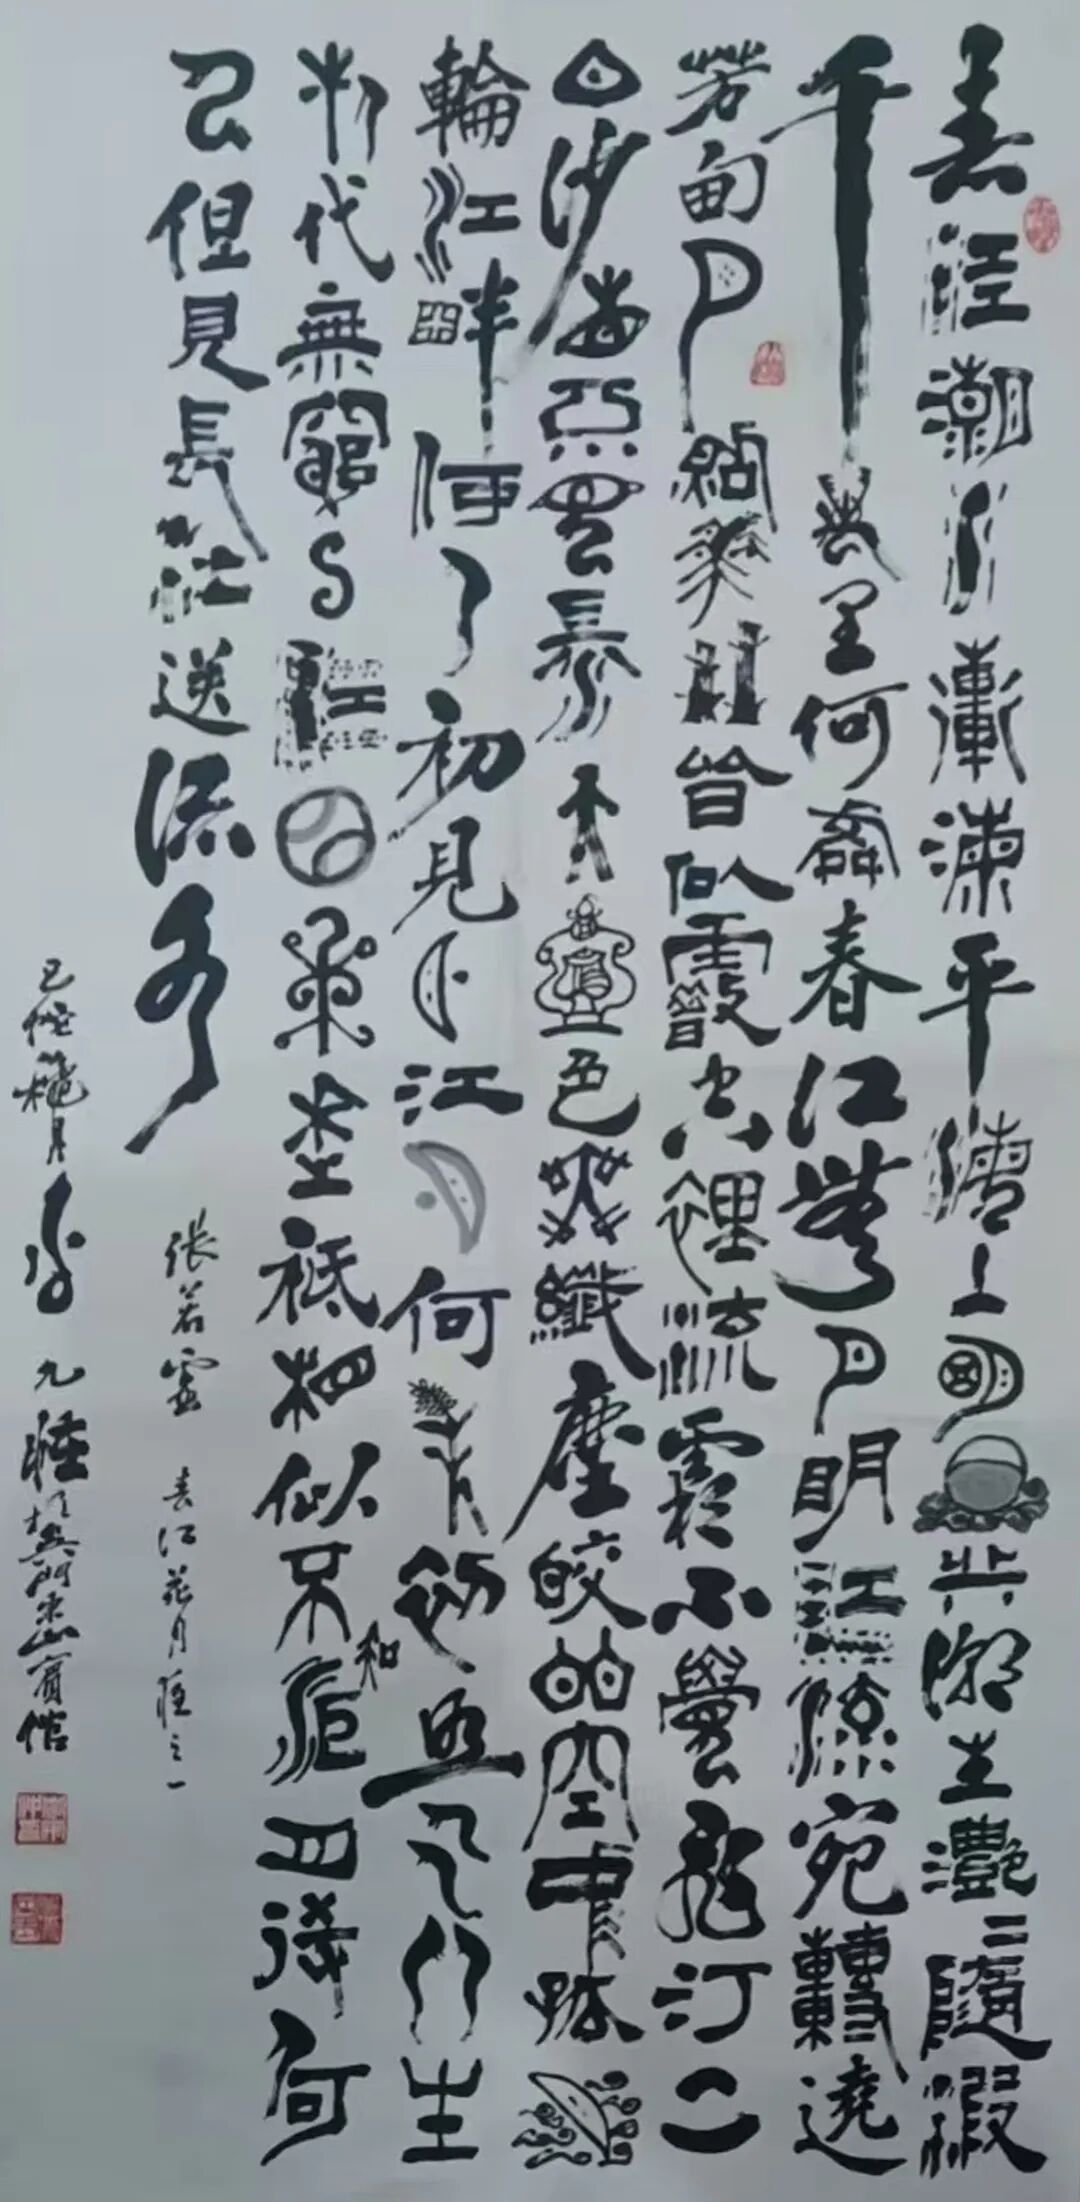 春江潮水連海平海上明月共潮生灩〻隨波
千萬里何處春江無月明江流宛轉遶
芳甸月照花林皆似霰空裡流霜不覺飛汀上
白沙看不見江天一色無纖塵皎皎空中孤月
輪江畔何人初見月江月何年初照人人生
代代無窮已江月年年祗相似不知江月待何
人但見長江送流水
張若虛 春江花月夜之一